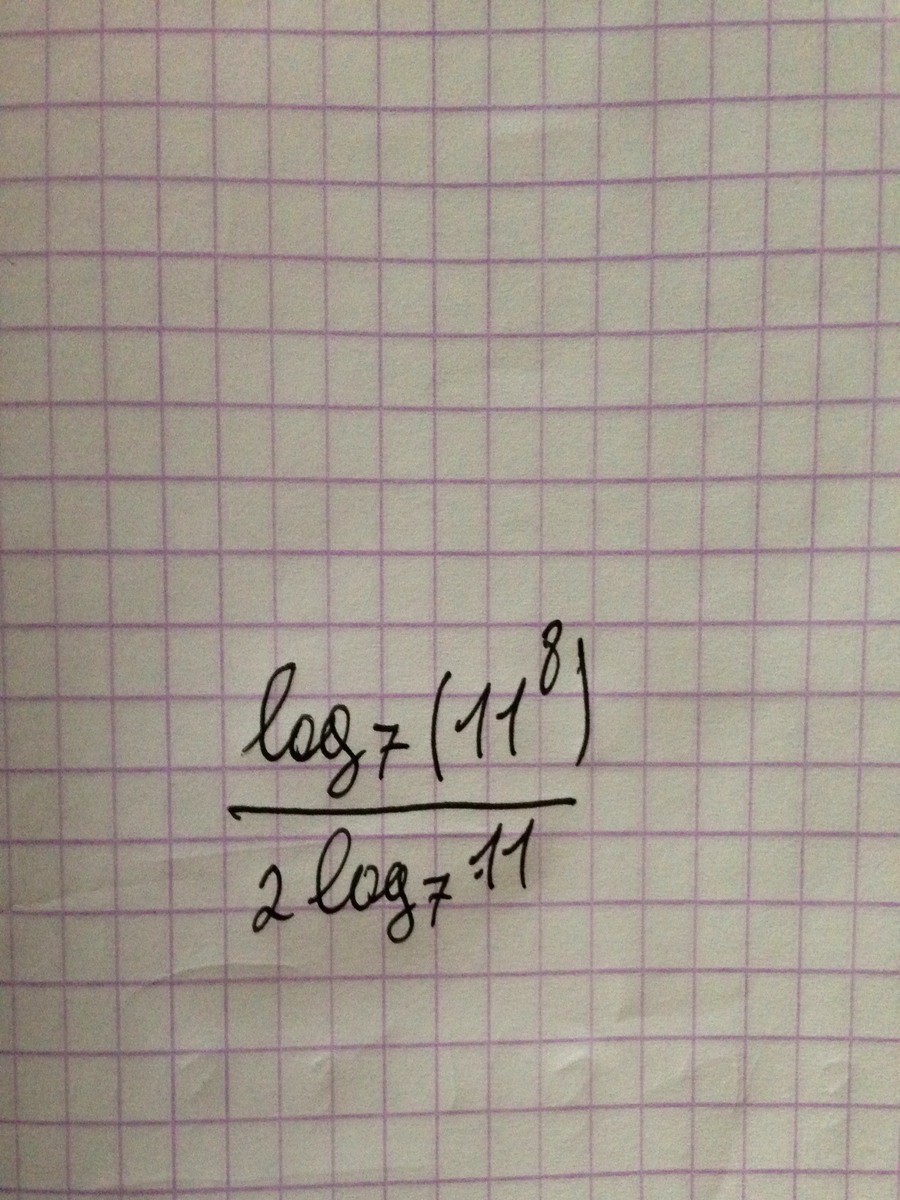 log₇(11⁸)
2 log₇ 11